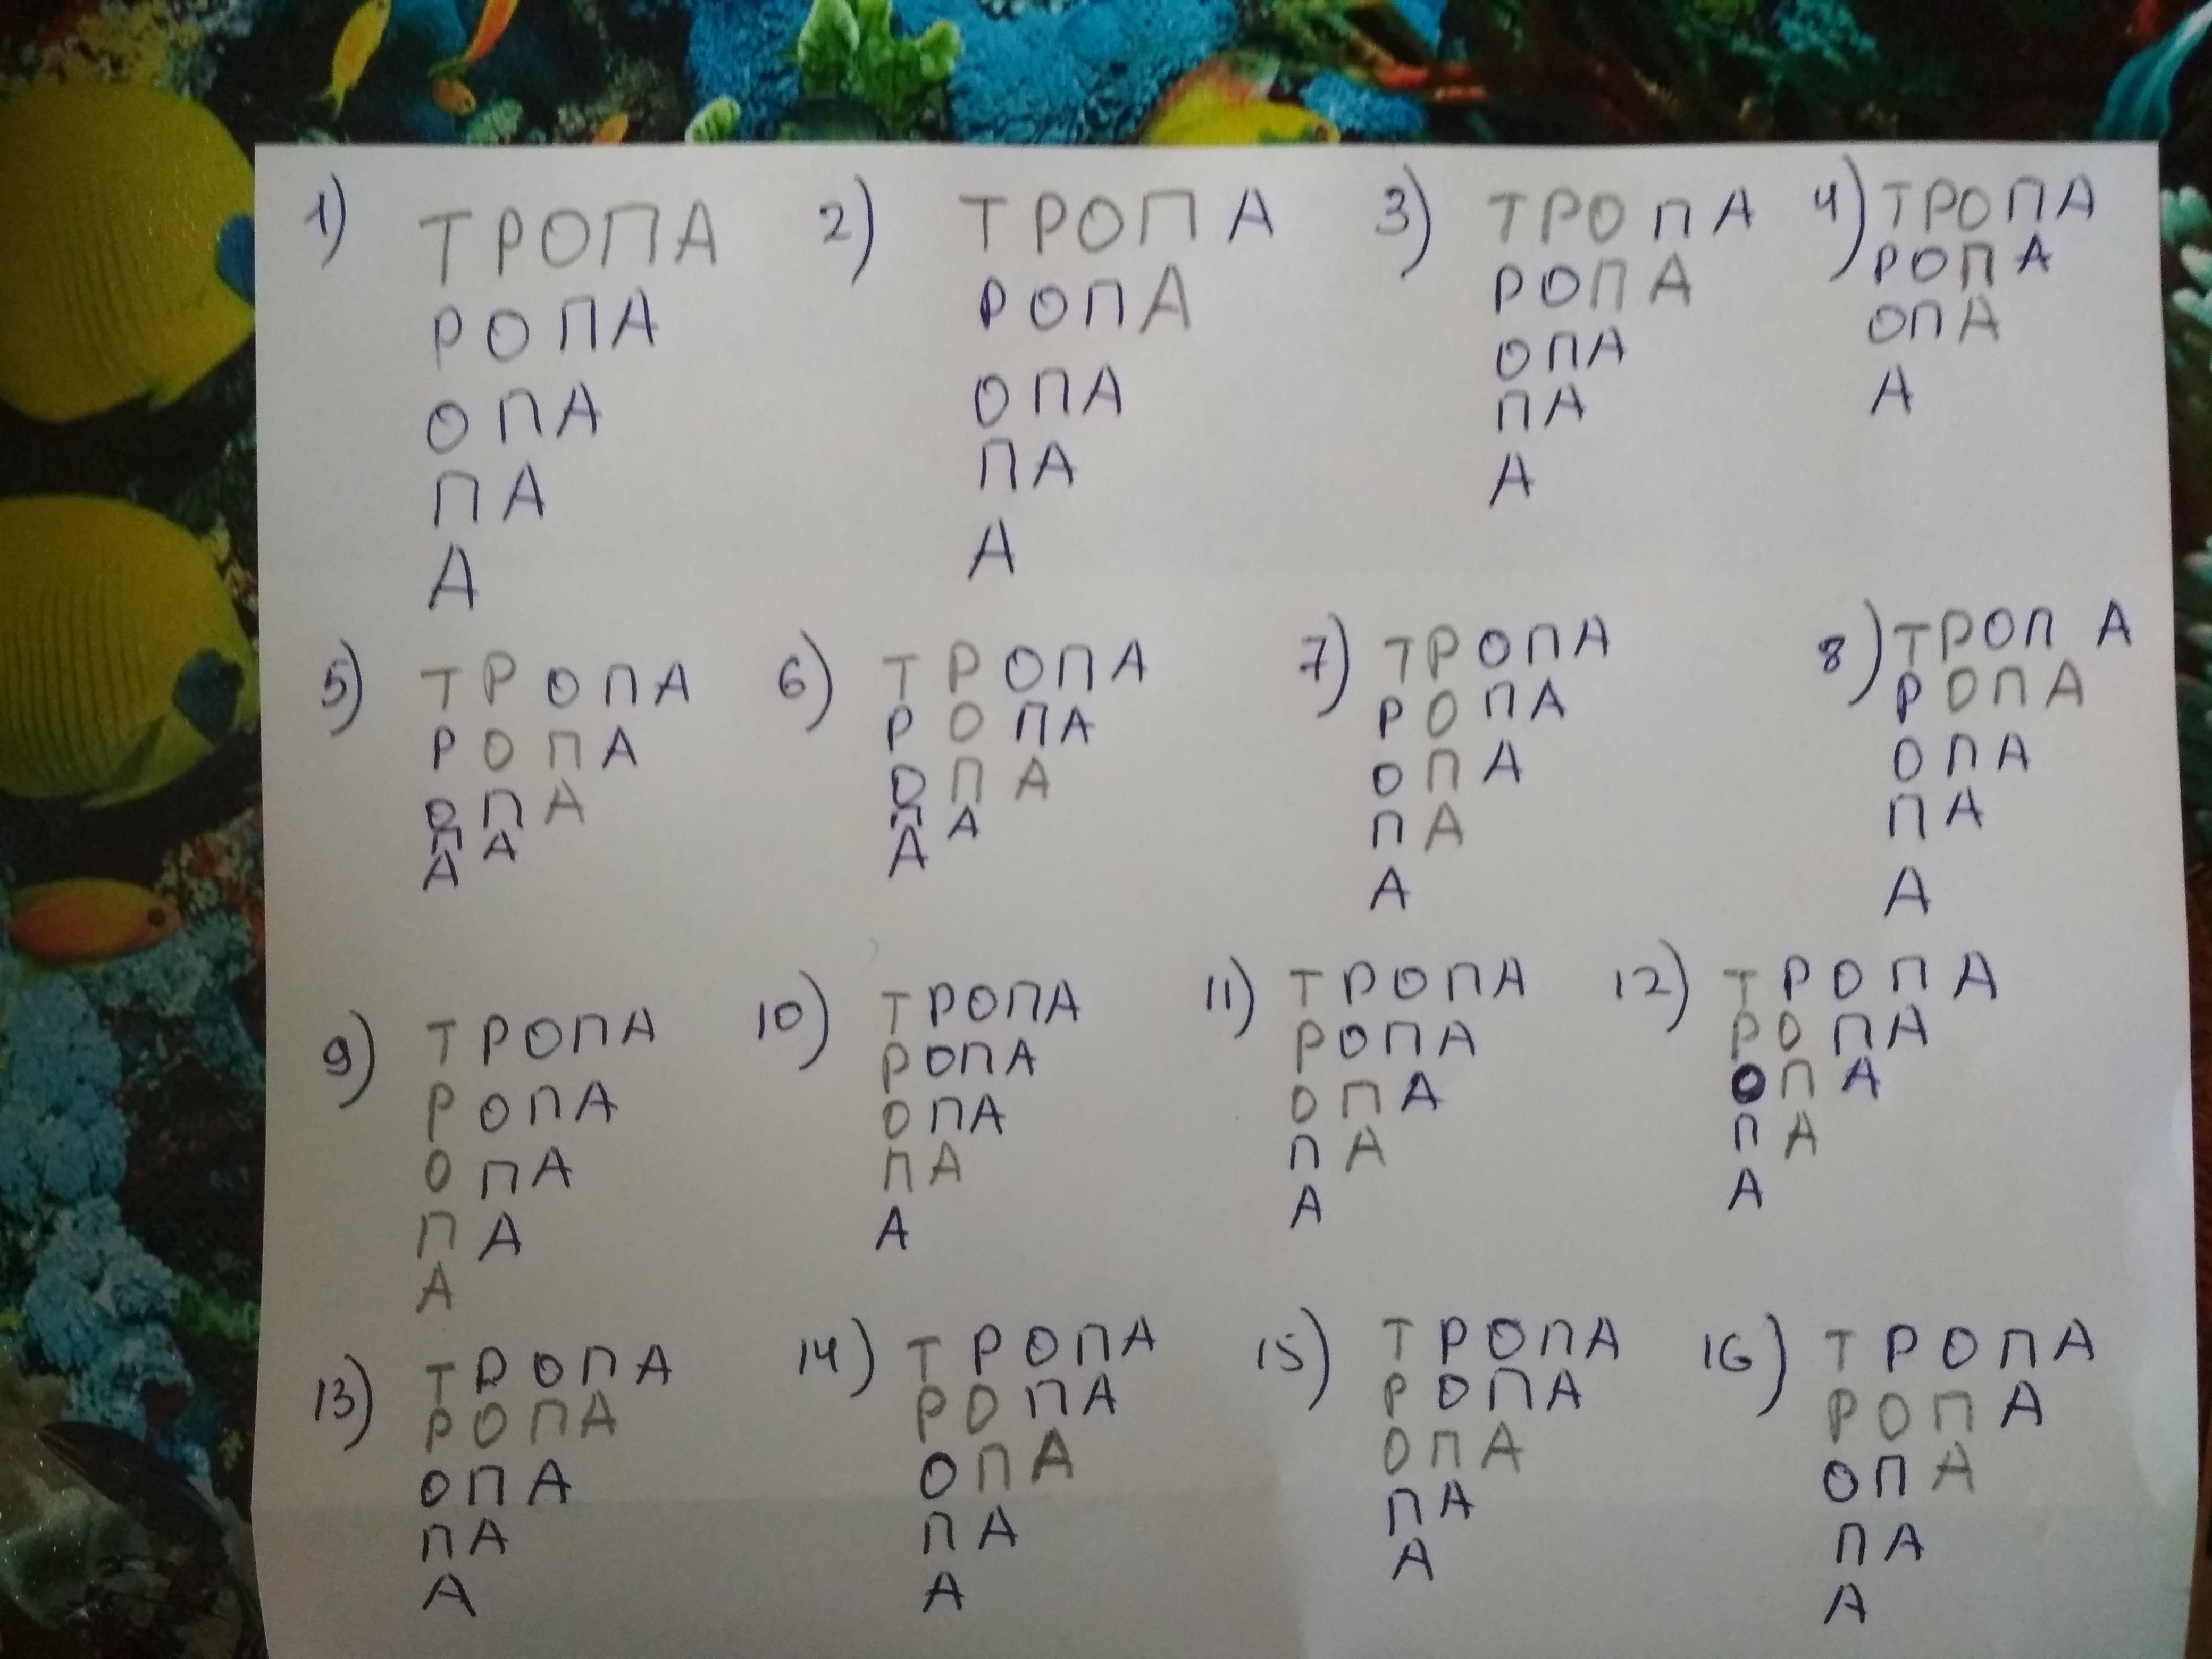 1) ТРОПА
РОПА
ОПА
ПА
А
2) ТРОПА
РОПА
ОПА
ПА
А
3) ТРОПА
РОПА
ОПА
ПА
А
4) ТРОПА
РОПА
ОПА
А
5) ТРОПА
РОПА
ОПА
ПА
А
6) ТРОПА
РОПА
ОПА
ПА
А
7) ТРОПА
РОПА
ОПА
ПА
А
8) ТРОПА
РОПА
ОПА
ПА
А
9) ТРОПА
РОПА
ОПА
ПА
А
10) ТРОПА
РОПА
ОПА
ПА
А
11) ТРОПА
РОПА
ОПА
ПА
А
12) ТРОПА
РОПА
ОПА
ПА
А
13) ТРОПА
РОПА
ОПА
ПА
А
14) ТРОПА
РОПА
ОПА
ПА
А
15) ТРОПА
РОПА
ОПА
ПА
А
16) ТРОПА
РОПА
ОПА
ПА
А